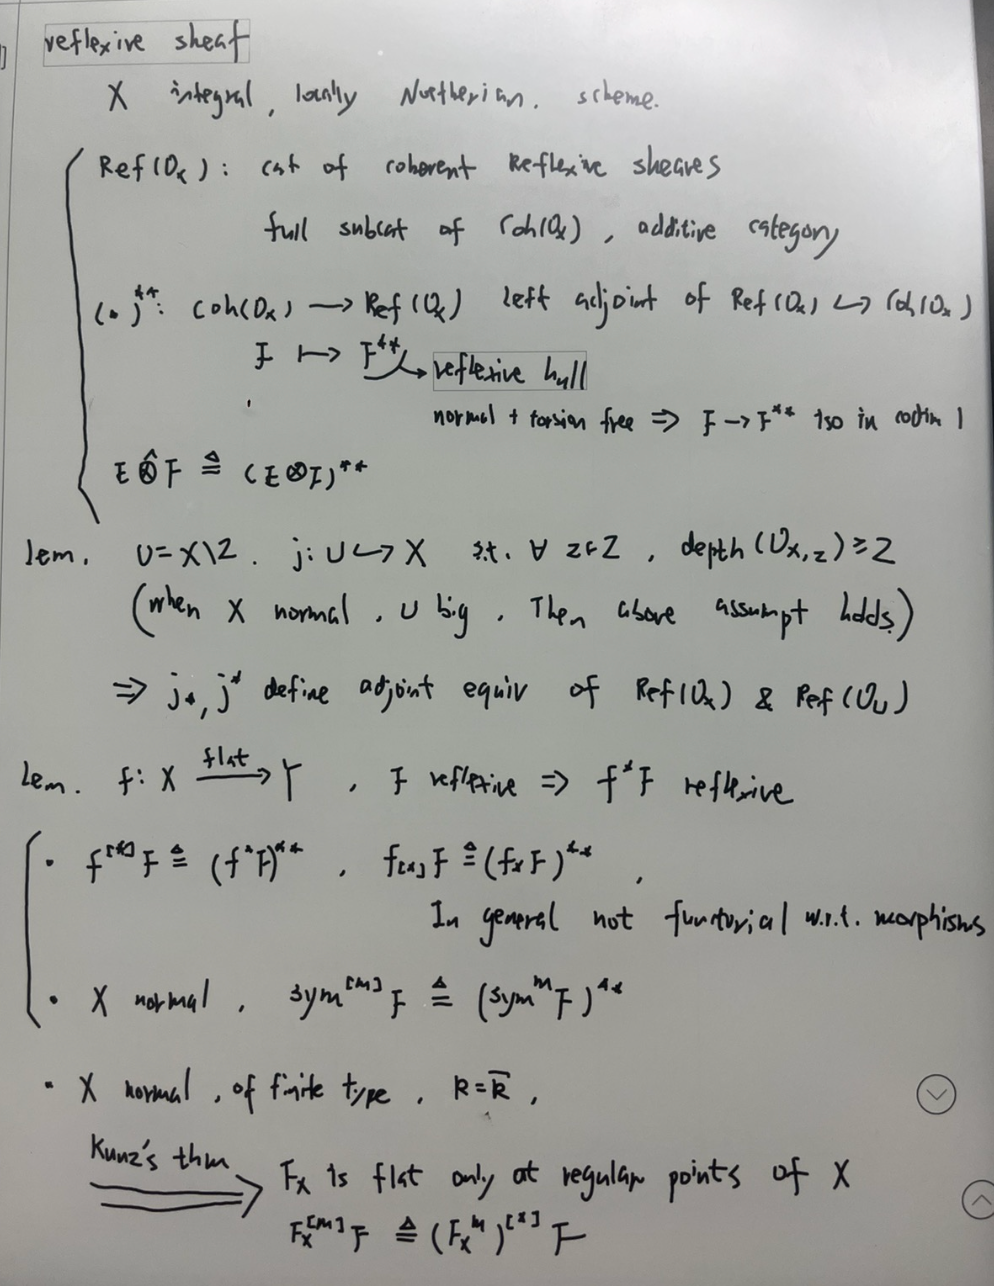 reflexive sheaf
X integral, locally Noetherian. scheme.
Ref(O_X): cat of coherent Reflexive sheaves
full subcat of Coh(O_X), additive category
(-)^{**}: Coh(O_X) → Ref(O_X) left adjoint of Ref(O_X) ↪ Coh(O_X)
F ↦ F^{**} → reflexive hull
normal + torsion free ⇒ F → F^{**} iso in codim 1
E ⊗̂ F ≜ (E⊗F)^{**}
lem. U = X\Z. j: U ↪ X s.t. ∀ z∈Z, depth(O_{X,z}) ≥ 2
(when X normal, U big. Then above assumpt holds.)
⇒ j_*, j^* define adjoint equiv of Ref(O_X) & Ref(O_U)
Lem. f: X \xrightarrow{flat} Y, F reflexive ⇒ f^*F reflexive
· f^{[*]}F ≜ (f^*F)^{**}, f_{[*]}F ≜ (f_*F)^{**},
In general not functorial w.r.t. morphisms
· X normal, Sym^{[m]}F ≜ (Sym^m F)^{**}
· X normal, of finite type, k = \overline{k},
Kunz's thm ⟹ F_X is flat only at regular points of X
F_X^{[m]}F ≜ (F_X^m)^{[*]}F